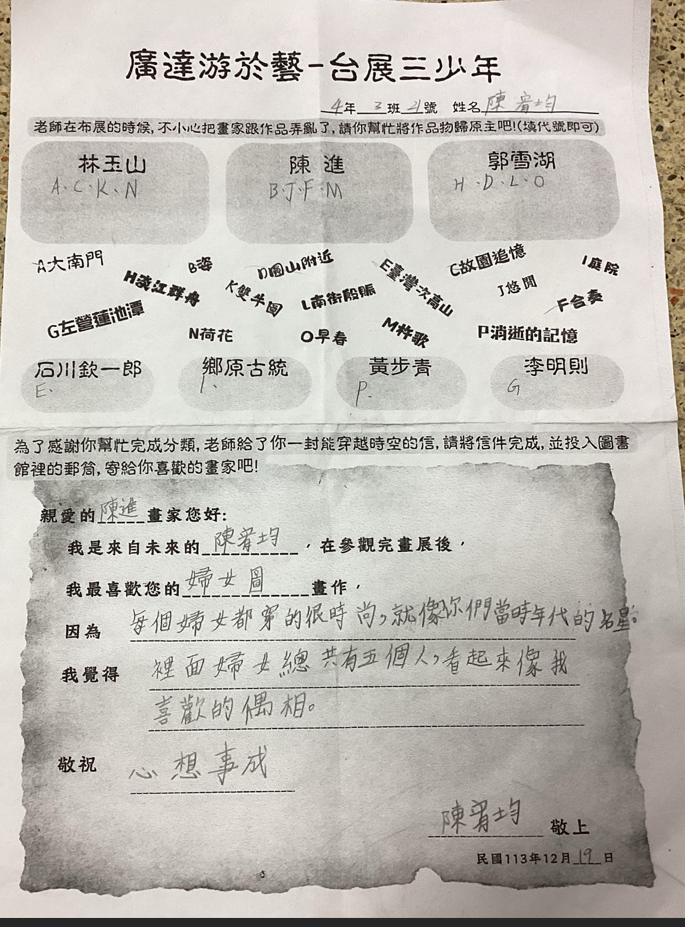 廣達游於藝-台展三少年
4年3班21號 姓名 陳宥均
老師在布展的時候,不小心把畫家跟作品弄亂了,請你幫忙將作品物歸原主吧!(填代號即可)
林玉山 陳進 郭雪湖
A.C.K.N B.J.F.M H.D.L.O
A大南門 B姿 D圓山附近 E臺灣次高山 C故園追憶 I庭院
H淡江群舟 K雙牛圖 L南街殷賑 J悠閒 F合奏
G左營蓮池潭 N荷花 O早春 M杵歌 P消逝的記憶
石川欽一郎 鄉原古統 黃步青 李明則
E. I. P. G
為了感謝你幫忙完成分類,老師給了你一封能穿越時空的信,請將信件完成,並投入圖書
館裡的郵筒,寄給你喜歡的畫家吧!
親愛的陳進畫家您好:
我是來自未來的陳宥均,在參觀完畫展後,
我最喜歡您的婦女圖畫作,
因為 每個婦女都穿的很時尚,就像你們當時年代的名星。
我覺得 裡面婦女總共有五個人,看起來像我
喜歡的偶相。
敬祝 心想事成
陳宥均 敬上
民國113年12月19日